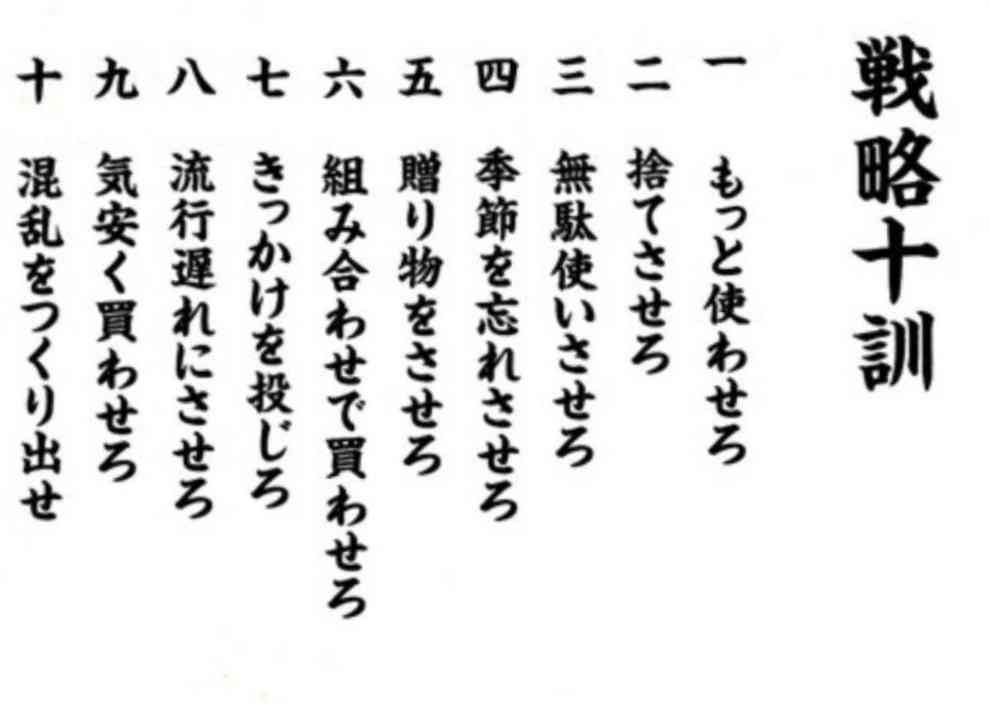 戦略十訓
一 もっと使わせろ
二 捨てさせろ
三 無駄使いさせろ
四 季節を忘れさせろ
五 贈り物をさせろ
六 組み合わせで買わせろ
七 きっかけを投じろ
八 流行遅れにさせろ
九 気安く買わせろ
十 混乱をつくり出せ